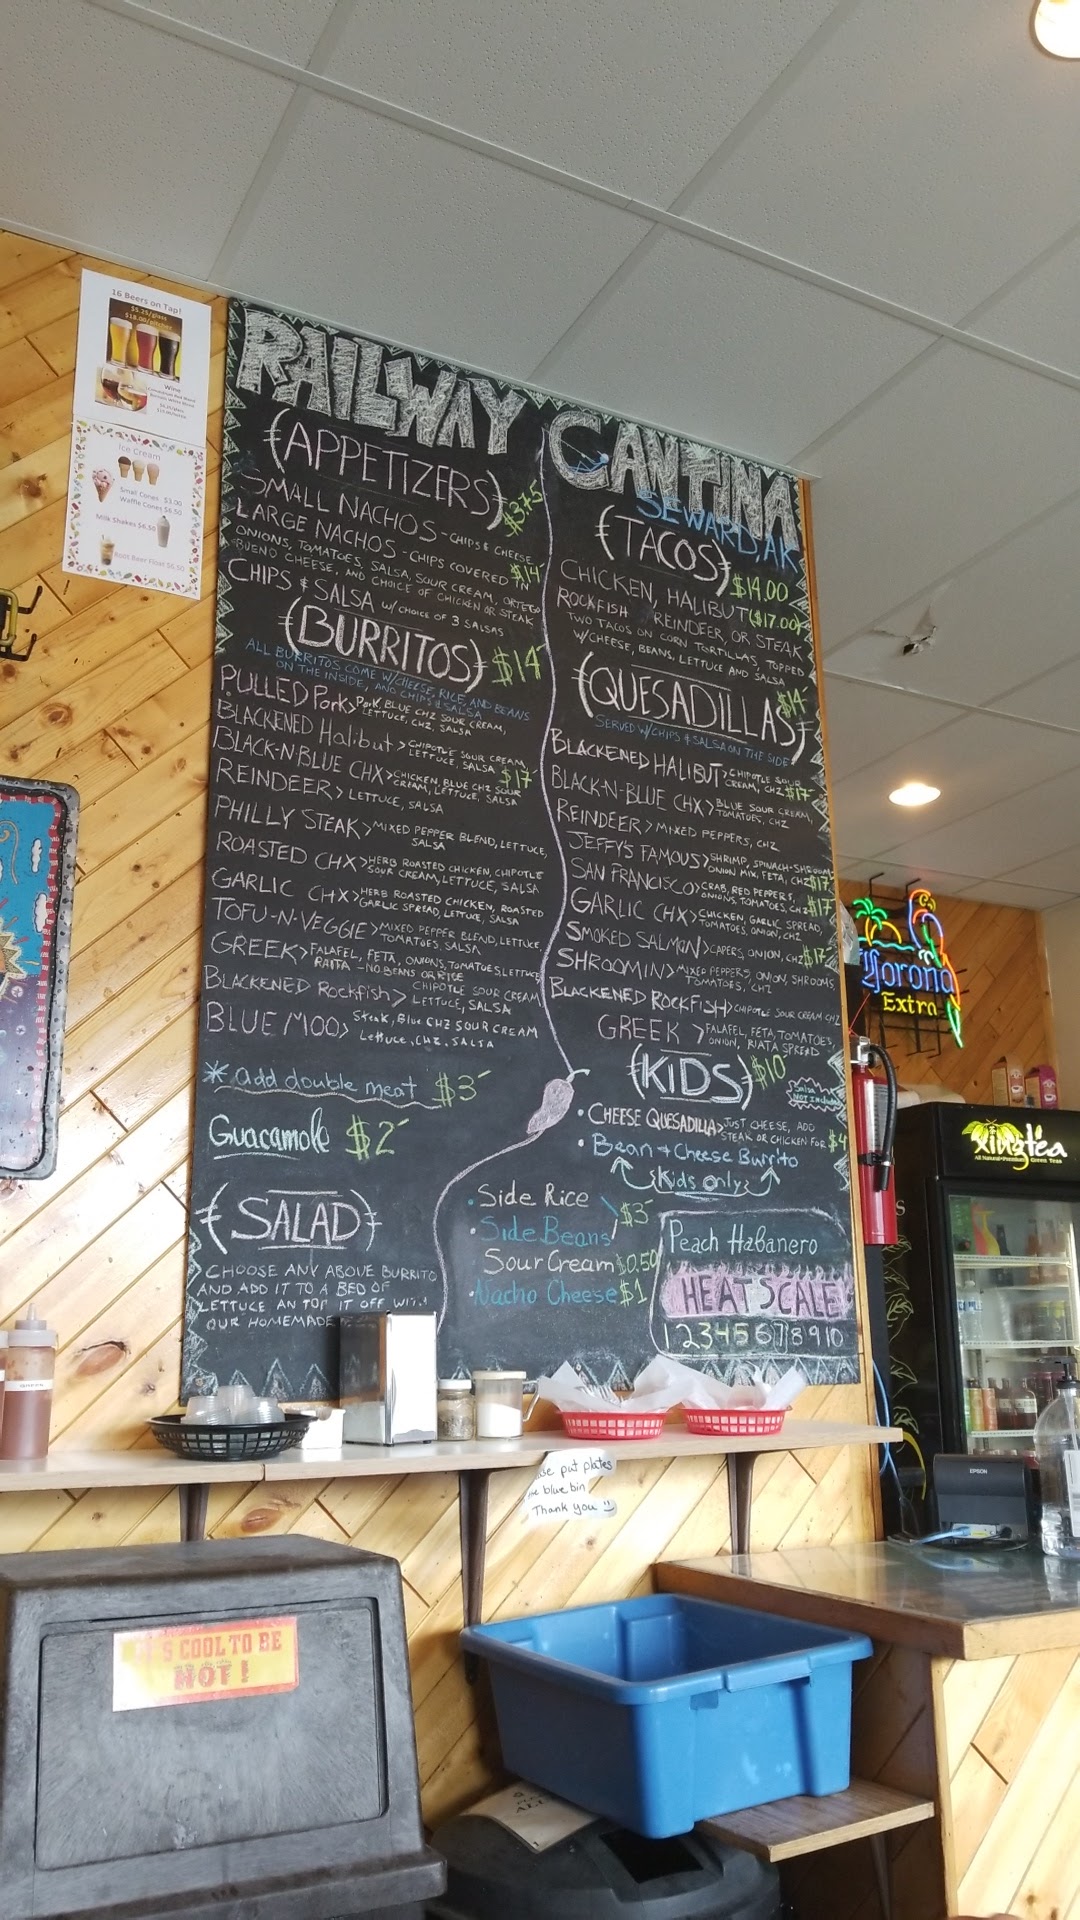 16 Beers on Tap!
$5.25/glass
$18.00/pitcher
Wine
Ice Cream
Small Cones $3.00
Waffle Cones $6.50
Milk Shakes $6.50
Root Beer Float $6.50
RAILWAY CANTINA
SEWARD, AK
(APPETIZERS)
SMALL NACHOS - CHIPS & CHEESE $3.75
LARGE NACHOS - CHIPS COVERED IN $14
ONIONS, TOMATOES, SALSA, SOUR CREAM, ORTEGA
BUENO CHEESE, AND CHOICE OF CHICKEN OR STEAK
CHIPS & SALSA W/ CHOICE OF 3 SALSAS
(BURRITOS) $14
ALL BURRITOS COME W/CHEESE, RICE, AND BEANS
ON THE INSIDE, AND CHIPS & SALSA
PULLED Porks Pork, BLUE CHZ SOUR CREAM,
LETTUCE, CHZ, SALSA
BLACKENED Halibut > CHIPOTLE SOUR CREAM,
LETTUCE, SALSA $17
BLACK-N-BLUE CHX > CHICKEN, BLUE CHZ SOUR
CREAM, LETTUCE, SALSA
REINDEER > LETTUCE, SALSA
PHILLY STEAK > MIXED PEPPER BLEND, LETTUCE,
SALSA
ROASTED CHX > HERB ROASTED CHICKEN, CHIPOTLE
SOUR CREAM, LETTUCE, SALSA
GARLIC CHX > HERB ROASTED CHICKEN, ROASTED
GARLIC SPREAD, LETTUCE, SALSA
TOFU-N-VEGGIE > MIXED PEPPER BLEND, LETTUCE,
TOMATOES, SALSA
GREEK > FALAFEL, FETA, ONIONS, TOMATOES, LETTUCE
RAITA - NO BEANS OR RICE
BLACKENED Rockfish > CHIPOTLE SOUR CREAM
LETTUCE, SALSA
BLUE MOO > Steak, Blue CHZ SOUR CREAM
Lettuce, CHZ, SALSA
* add double meat $3
Guacamole $2
(SALAD)
CHOOSE ANY ABOVE BURRITO
AND ADD IT TO A BED OF
LETTUCE AN TOP IT OFF WITH
OUR HOMEMADE
(TACOS) $14.00
CHICKEN, HALIBUT ($17.00)
ROCKFISH REINDEER, OR STEAK
TWO TACOS ON CORN TORTILLAS, TOPPED
W/CHEESE, BEANS, LETTUCE AND SALSA
(QUESADILLAS) $14
SERVED W/CHIPS & SALSA ON THE SIDE
BLACKENED HALIBUT > CHIPOTLE SOUR
CREAM, CHZ $17
BLACK-N-BLUE CHX > BLUE SOUR CREAM,
TOMATOES, CHZ
REINDEER > MIXED PEPPERS, CHZ
JEFFY'S FAMOUS > SHRIMP, SPINACH-SHROOM
ONION MIX, FETA, CHZ $17
SAN FRANCISCO > CRAB, RED PEPPERS,
ONIONS, TOMATOES, CHZ $17
GARLIC CHX > CHICKEN, GARLIC SPREAD,
TOMATOES, ONION, CHZ
SMOKED SALMON > CAPERS, ONION, CHZ $17
SHROOMIN > MIXED PEPPERS, ONION, SHROOMS,
TOMATOES, CHZ
BLACKENED ROCKFISH > CHIPOTLE SOUR CREAM CHZ
GREEK > FALAFEL, FETA, TOMATOES,
ONION, RIATA SPREAD
(KIDS) $10
Salsa
NOT Included
• CHEESE QUESADILLA > JUST CHEESE, ADD
STEAK OR CHICKEN FOR $4
• Bean + Cheese Burrito
Kids only
• Side Rice
• Side Beans $3
Sour Cream $0.50
• Nacho Cheese $1
Peach Habanero
HEAT SCALE
1 2 3 4 5 6 7 8 9 10
Corona
Extra
xingtea
All Natural • Premium Green Teas
EPSON
put plates
blue bin
Thank you
COOL TO BE
HOT!